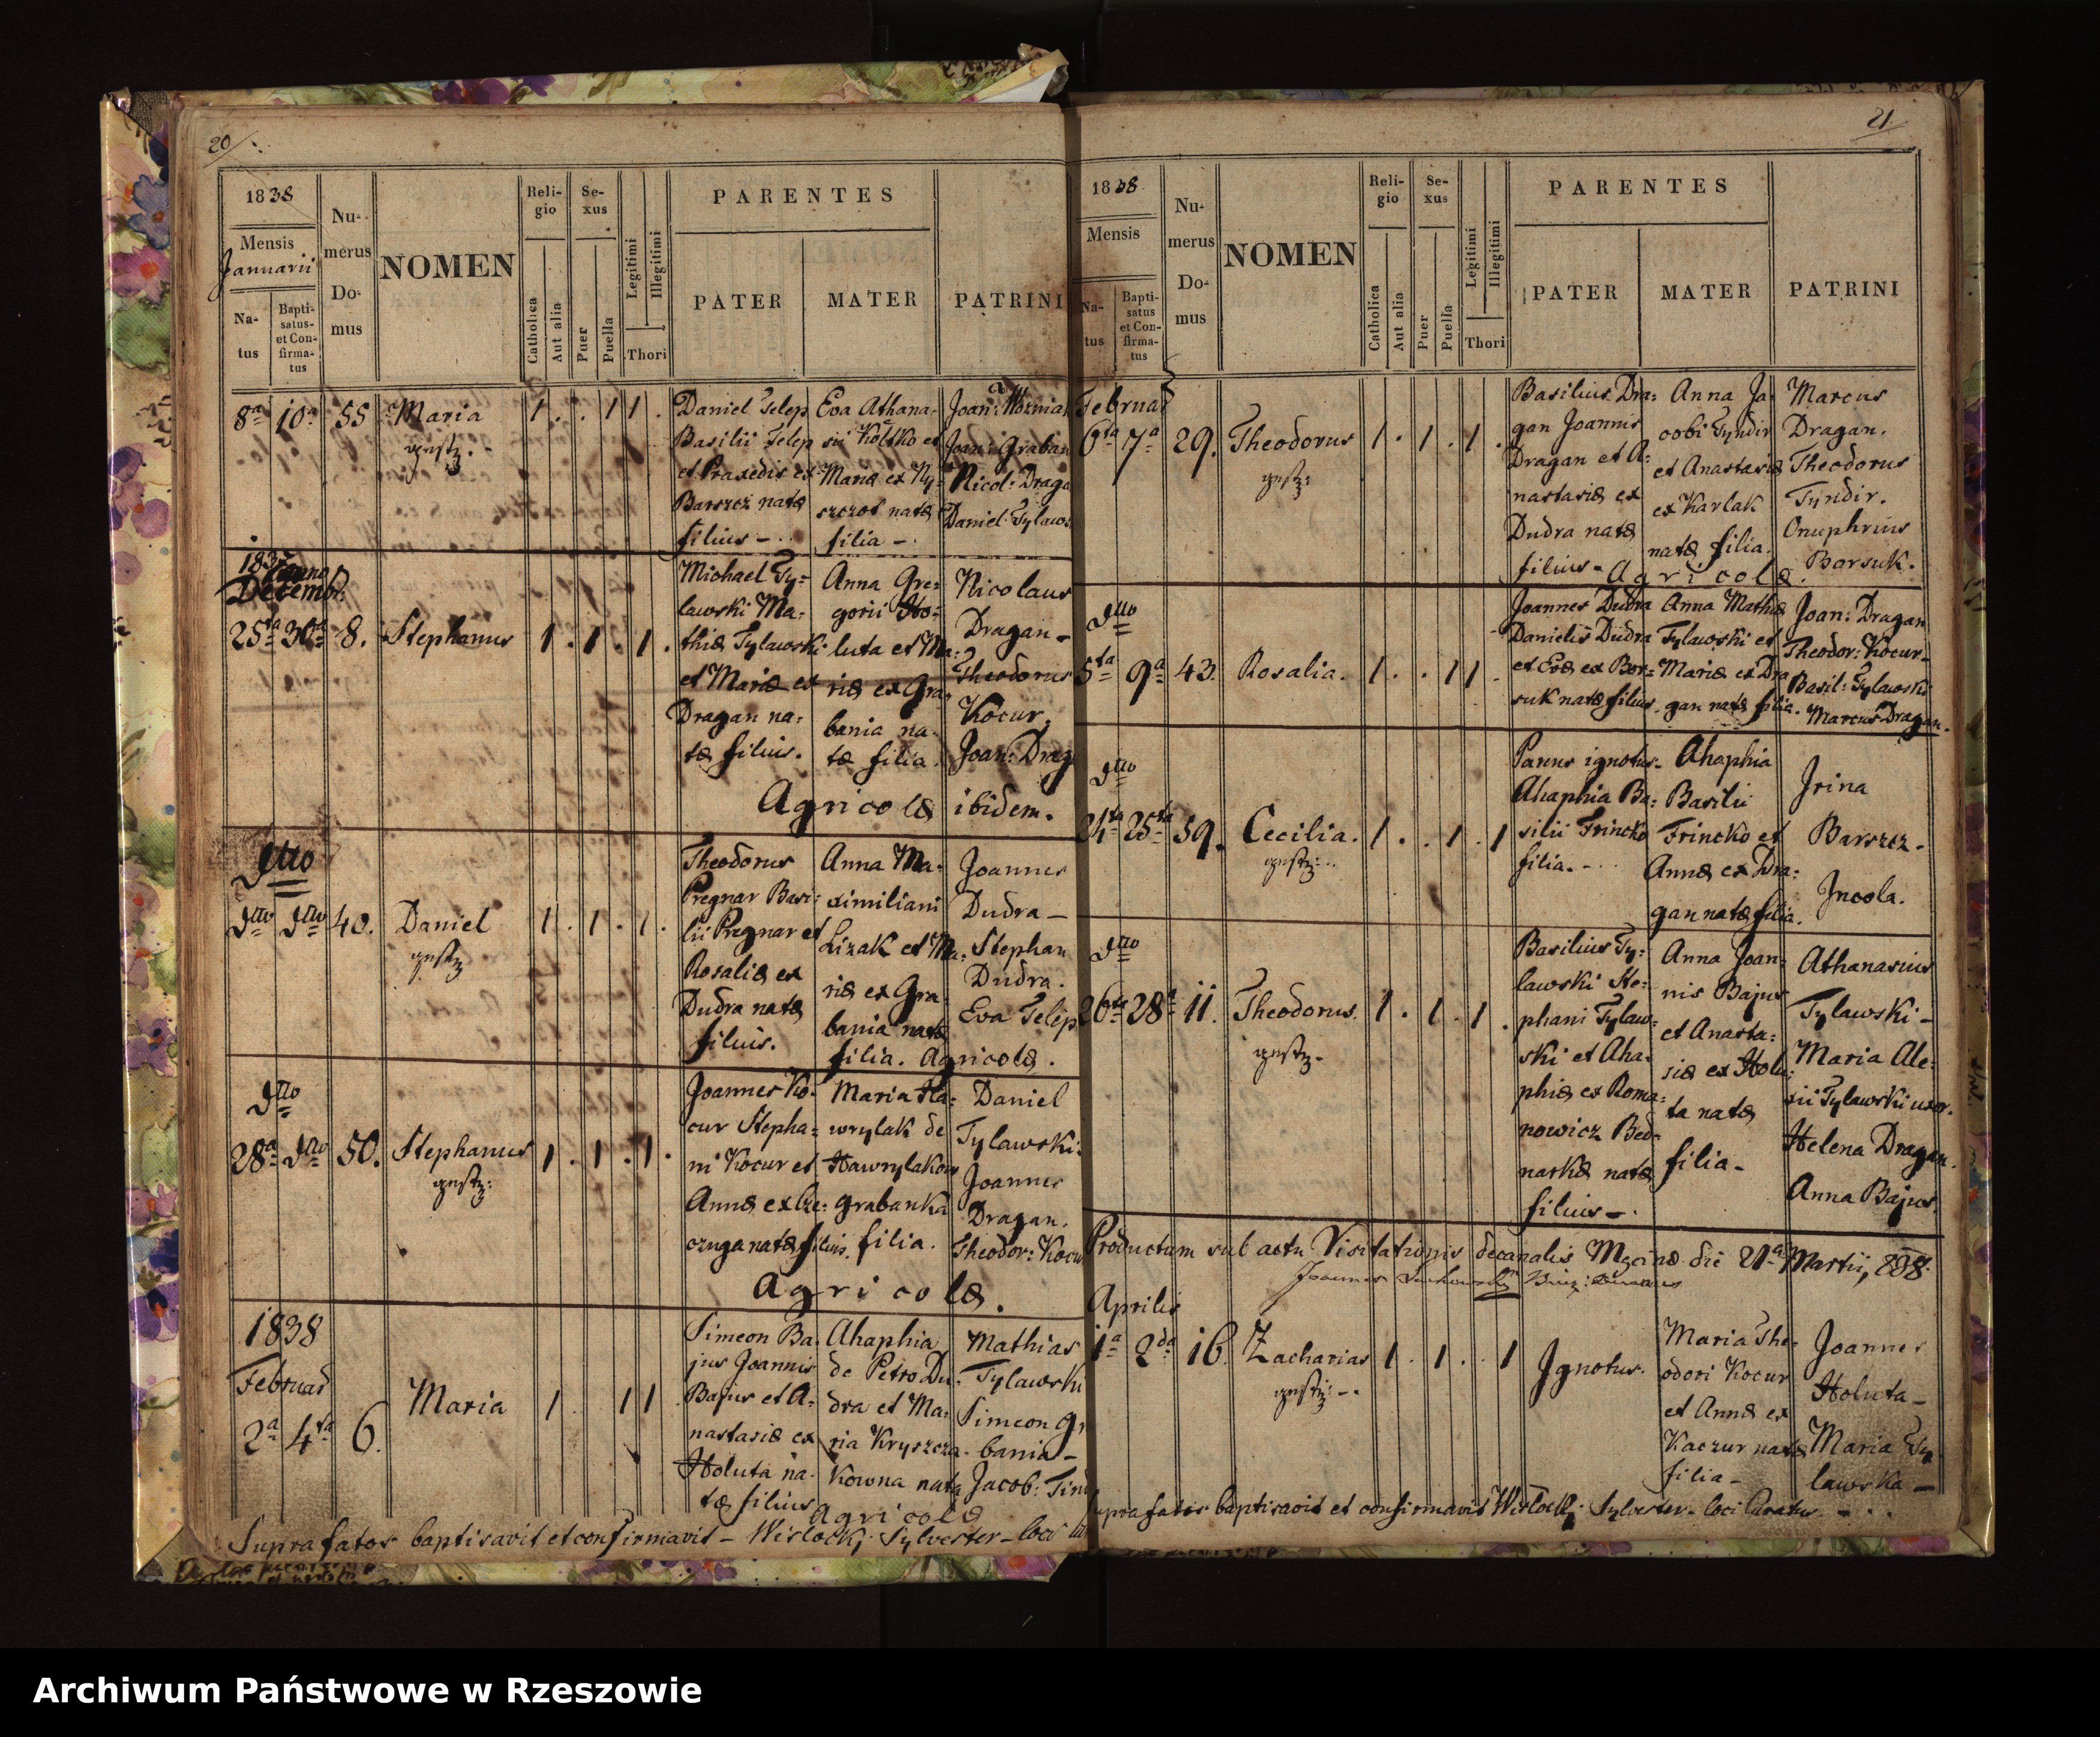 20
1838
Mensis
Januarii
Na-
tus
Bapti-
satus-
et Con-
firma-
tus
Nu-
merus
Do-
mus
NOMEN
Reli-
gio
Catholica
Aut alia
Se-
xus
Puer
Puella
Legitimi
Illegitimi
Thori
PARENTES
PATER
MATER
PATRINI
8ª 10ª 55 Maria 1 . . 1 1 .
Daniel Telep
Basilii Telep
et Praxedis ex
Barszcz natæ
filius -
Eva Athana-
sii Koltko et
Mariæ ex Ny-
szczot natæ
filia -
Joan: Woznia
Joan: Graban
Nicol: Draga
Daniel Tylaws
Decemb:
25ta 30ta 8. Stephanus 1 . 1 . 1 .
Michael Ty=
lawski Ma=
thiæ Tylawski
et Mariæ ex
Dragan na=
tæ filius.
Anna Gre=
gorii Ho=
luta et Ma=
riæ ex Gra=
bania na
tæ filia.
Nicolaus
Dragan -
Theodorus
Kocur.
Joan: Drag
Agricolæ ibidem.
Dtto
Dtto Dtto 40. Daniel 1 . 1 . 1 .
Theodorus
Pregnar Basi=
lii Pregnar et
Rosaliæ ex
Dudra natæ
filius.
Anna Ma=
ximiliani
Lizak et Ma=
riæ ex Gra
bania natæ
filia. Agricolæ.
Joannes
Dudra -
Stephan
Dudra.
Eva Telep
Dtto
28ª Dtto 50. Stephanus 1 . 1 . 1 .
Joannes Ko-
cur Stepha=
ni Kocur et
Annæ ex
czuga natæ filius.
Maria Ha=
wrylak de
Hawrylakow
Grabanka
filia.
Daniel
Tylawski
Joannes
Dragan.
Theodor: Kocu
Agricolæ.
1838
Februar
2ª 4ta 6. Maria 1 . 1 1
Simeon Ba.
jus Joannis
Bajus et A=
nastasiæ ex
Holuta na=
tæ filius
Ahaphia
de Petro Du=
dra et Ma=
ria Kryszcza
kowna nata
Agricolæ
Mathias
Tylawski
Simeon Gr
bania -
Jacob: Tind
Suprafatos baptisavit et confirmavit - Wislocki Sylvester - loci
21
1838
Mensis
Na-
tus
Bapti-
satus
et Con-
firma-
tus
Nu-
merus
Do-
mus
NOMEN
Reli-
gio
Catholica
Aut alia
Se-
xus
Puer
Puella
Legitimi
Illegitimi
Thori
PARENTES
PATER
MATER
PATRINI
Februar
6ta 7ª 29. Theodorus 1 . 1 . 1 .
Basilius Dra=
gan Joannis
Dragan et A=
nastasiæ ex
Dudra natæ
filius -
Anna Ja
cobi Tyndir
et Anastasiæ
ex Karlak
natæ filia.
Marcus
Dragan.
Theodorus
Tyndir.
Onuphrius
Barsuk.
Agricolæ.
Dtto
5ta 9ª 43. Rosalia. 1 . . 1 1 .
Joannes Dudra
Danielis Dudra
et Evæ ex Bor=
suk natæ filius.
Anna Mathiæ
Tylawski et
Mariæ ex Dra
gan natæ filia.
Joan: Dragan
Theodor: Kocur-
Basil: Tylawski
Marcus Dragan.
Dtto
24ta 25ta 59. Cecilia. 1 . . 1 . 1
ignotus -
Ahaphia Ba=
silii Trincko
filia. -
Ahaphia
Basilii
Trincko et
Annæ ex Dra=
gan natæ filia.
Irina
Barszcz -
Incola.
Dtto
26ta 28ª 11. Theodorus. 1 . 1 . 1 .
Basilius Ty=
lawski Ste=
phani Tylaw=
ski et Aha=
phiæ ex Roma=
nowicz Bed-
narkæ natæ
filius -
Anna Joan=
nis Bajus
et Anasta=
siæ ex Holu=
ta natæ
filia -
Athanasius
Tylawski -
Maria Ale=
xii Tylawski uxor.
Helena Dragan.
Anna Bajus.
Productum sub actu Visitationis decanalis die 21ª Martii, 838.
Aprilis
1ª 2da 16. Zacharias 1 . 1 . . 1
Ignotus.
Maria The=
odori Kocur
et Annæ ex
Kaczur natæ
filia -
Joannes
Holuta -
Maria Ty
lawska -
Suprafatos baptisavit et confirmavit Wislocki Sylvester - loci Curatus -
Archiwum Państwowe w Rzeszowie